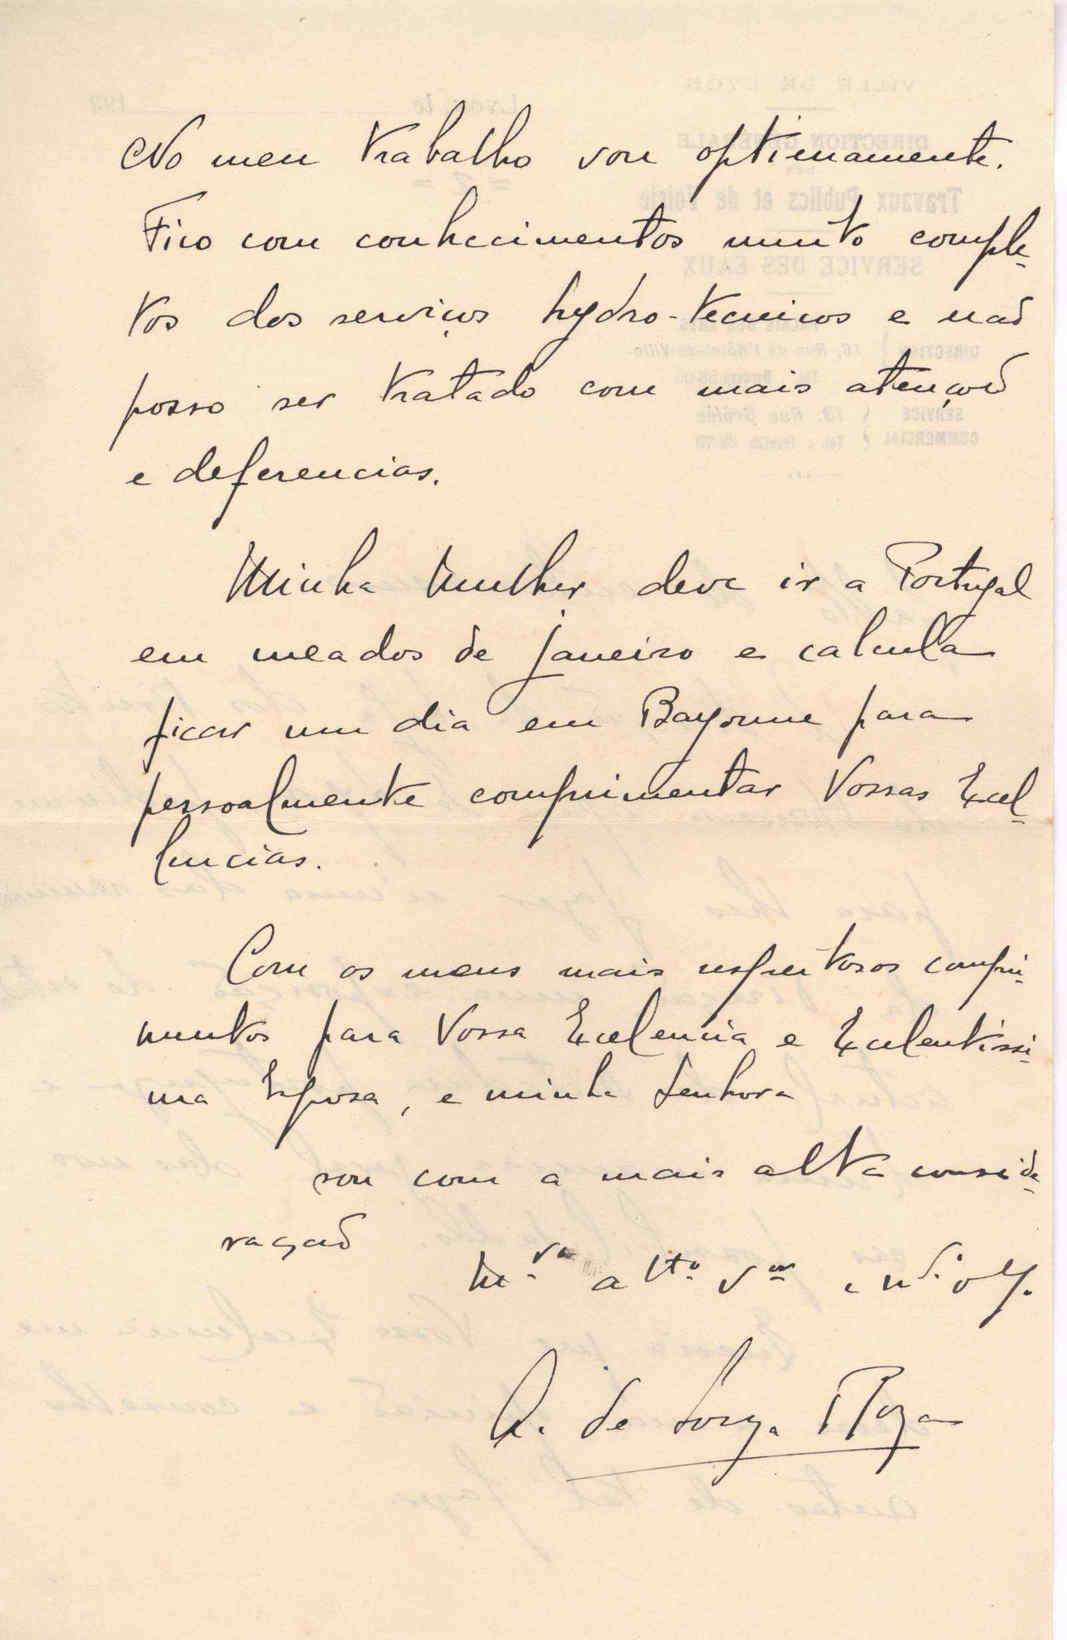 No meu trabalho vou optimamente.
Fico com conhecimentos muito comple-
tos dos serviços hydro-tecnicos e naõ
posso ser tratado com mais atençoẽ
e deferencias.
Minha Mulher deve ir a Portugal
em meados de janeiro e calcula
ficar um dia em Bayonne para
pessoalmente comprimentar Vossas Excel-
lencias.
Com os meus mais respeitosos compri-
mentos para Vossa Excelencia e Excelentissi-
ma Esposa, e minha Senhora
sou com a mais alta conside-
raçaõ
alto
A. de Souza Roza